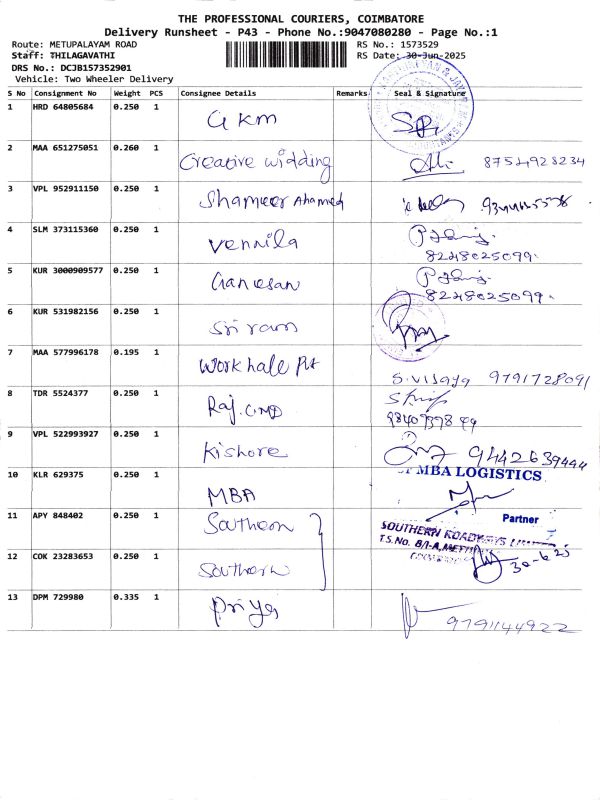 THE PROFESSIONAL COURIERS, COIMBATORE
Delivery Runsheet - P43 - Phone No.:9047080280 - Page No.:1
Route: METUPALAYAM ROAD
RS No.: 1573529
Staff: THILAGAVATHI
RS Date: 30-Jun-2025
DRS No.: DCJB157352901
Vehicle: Two Wheeler Delivery
S No Consignment No Weight PCS Consignee Details Remarks Seal & Signature
1 HRD 64805684 0.250 1 GKM
2 MAA 651275051 0.260 1 Creative widding 8754928234
3 VPL 952911150 0.250 1 Shameer Ahamed
4 SLM 373115360 0.250 1 Vennila
8248025099.
5 KUR 3000909577 0.250 1 Ganesan
8248025099.
6 KUR 531982156 0.250 1 Sri ram
7 MAA 577996178 0.195 1 Work hale Pvt
S.vijaya 9791728091
8 TDR 5524377 0.250 1 Raj.
9 VPL 522993927 0.250 1 Kishore 9442639444
MBA LOGISTICS
10 KLR 629375 0.250 1 MBA
Partner
11 APY 848402 0.250 1 Southern
SOUTHERN ROADWAYS
T.S.No. 8/1-A,
12 COK 23283653 0.250 1 Southern 30-6-25
13 DPM 729980 0.335 1 Priya
9791144922